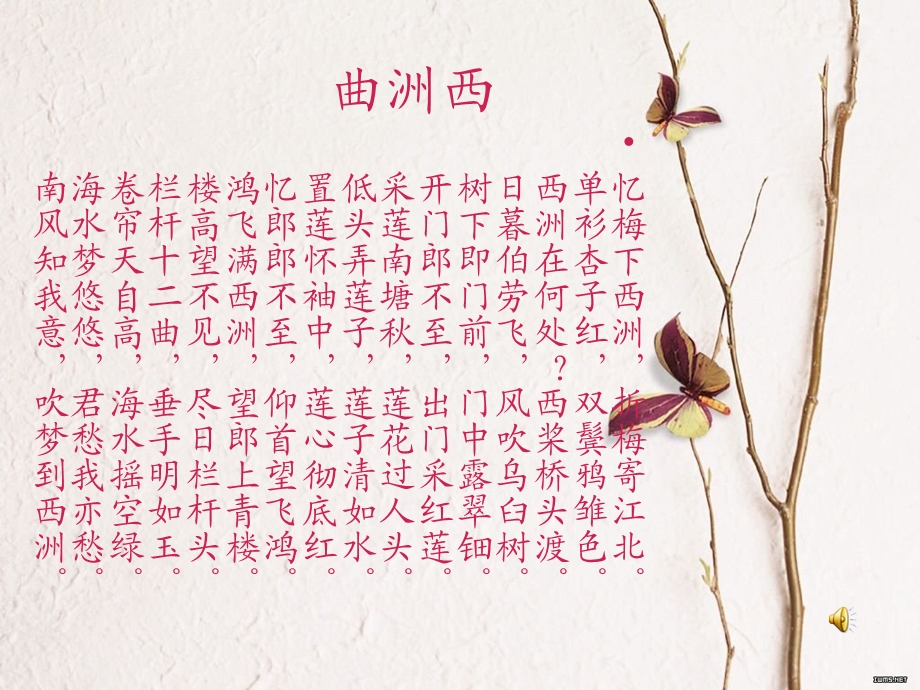 西洲曲
忆梅下西洲,折梅寄江北。
单衫杏子红,双鬓鸦雏色。
西洲在何处?西桨桥头渡。
日暮伯劳飞,风吹乌臼树。
树下即门前,门中露翠钿。
开门郎不至,出门采红莲。
采莲南塘秋,莲花过人头。
低头弄莲子,莲子清如水。
置莲怀袖中,莲心彻底红。
忆郎郎不至,仰首望飞鸿。
鸿飞满西洲,望郎上青楼。
楼高望不见,尽日栏杆头。
栏杆十二曲,垂手明如玉。
卷帘天自高,海水摇空绿。
海水梦悠悠,君愁我亦愁。
南风知我意,吹梦到西洲。
IWMS.NET